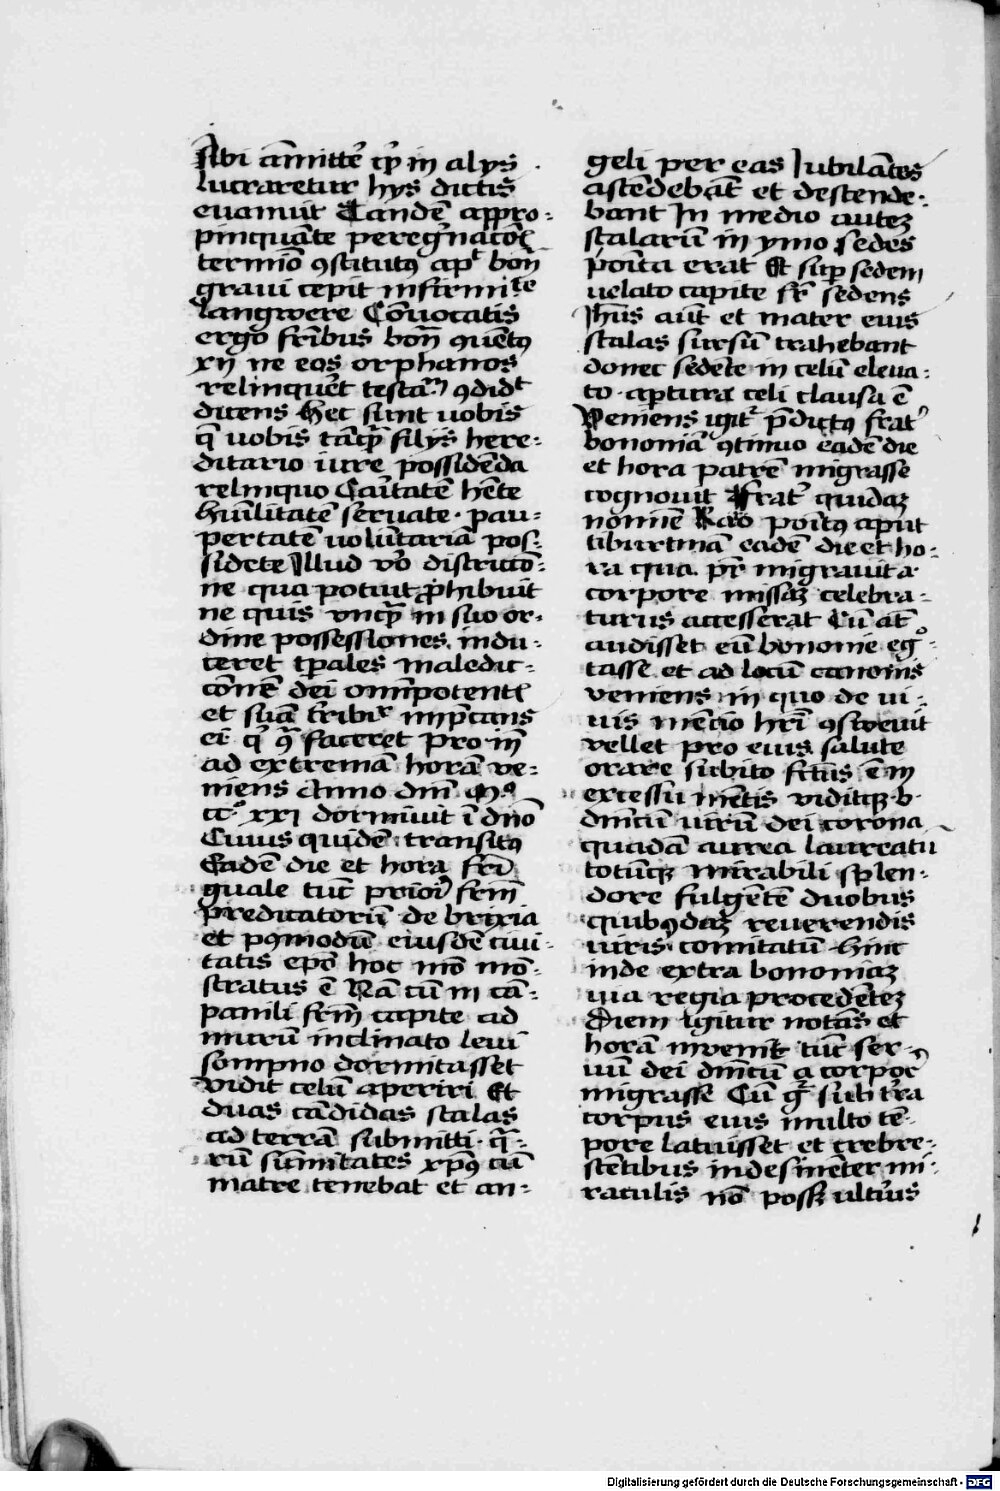 sibi a͞mitte᷒ qͥ in alys
lucraretur hys dictis
euanuit Tande͞ appro-
pinqua͞te peregͥnaco͞is
termi͞o ꝯstitutꝰ apᵗ bon͞
graui cepit infirmi͞te
langwere Co͞uocatis
ergo fr͞ibus bon͞ ꝯue͞tꝰ
xij ne eos orphanos
relinquer͞t testa͞m ꝯdidᵗ
dicens Hec sunt uobis
q͞ uobis ta͞qᷓ filys here-
ditario iure posside͞da
relinquo Ca͞ritate͞ he͞te
Hu͞ilitate͞ seruate · pau-
pertate͞ uolu͞taria͞ pos-
sidete Illud vo͞ districco͞-
ne qua potuit ꝓhibuit
ne quis vnqᷓ in suo or-
dine possessiones indu-
ceret tp͞ales maledic-
co͞ne͞ dei om͞ipotent͞
et sua͞ terribiᷣ imp͞cans
ei͞ qͥ qᷓ faceret Pro in͞
ad extrema͞ hora͞ ve-
niens Anno dn͞i Mͦ
ccͦ xxi dormiuit i͞ dn͞o
Cuius quide͞ transitꝰ
Eade͞ die et hora fr͞i
guale tu͞c priori fr͞m
predicatoru͞ de brixia
et pꝯmodu͞ eiusde͞ ciui-
tatis ep͞o hoc mo͞ mo͞-
stratus e͞ Na͞ cu͞ in ca͞-
panili fr͞m capite ad
muru͞ inclinato leui
sompno dormitasset
vidit celu͞ aperiri Et
duas ca͞didas scalas
ad terra͞ submitti · qᷓ-
ru͞ su͞mitates xp͞ꝰ cu͞
matre tenebat et an-
geli per eas Iubila͞tes
asce͞deba͞t et descende-
bant In medio autez
scalaru͞ in ymo sedes
po͞ita erat Et sup͞ sedem
uelato capite fr͞ sedens
Ih͞us au͞t et mater eius
scalas sursu͞ trahebant
donec sede͞te in celu͞ eleua-
to · ap͞tura celi clausa e͞
Veniens igitᷣ p͞dictꝰ frat᷒
bononia͞ ꝯtinuo eade͞ die
et hora patre͞ migrasse
cognouit Frat᷒ quidaz
nomi͞e Rao po͞itꝰ aput
tiburtina͞ eade͞ die et ho-
ra qua pr͞ migrauit a
corpore missaz celebra-
turus accesserat Cu͞ at͞
audisset eu͞ bononie egͦ͞-
tasse et ad locu͞ canonis
veniens in quo de ui-
uis me͞cio h͞ri ꝯsweuit
vellet pro eius salute
orare subito f͞cus e͞ in
excessu me͞tis viditqz b
dn͞icu͞ uiru͞ dei corona
quada͞ aurea laureatu͞
totu͞qz mirabili splen-
dore fulge͞te͞ duobus
quibꝰdaz reuerendis
uiris comitatu͞ hinc
inde extra bononiaz
uia regia procede͞tez
Diem igitur nota͞s et
hora͞ inuenit tu͞c ser-
uu͞ dei dn͞icu͞ a corpore
migrasse Cu͞ gᷓ sub t᷒ra
corpus eius multo te͞-
pore latuisset et crebre-
sce͞tibus indesine͞ter mi-
raculis no͞ possz ulti᷒us